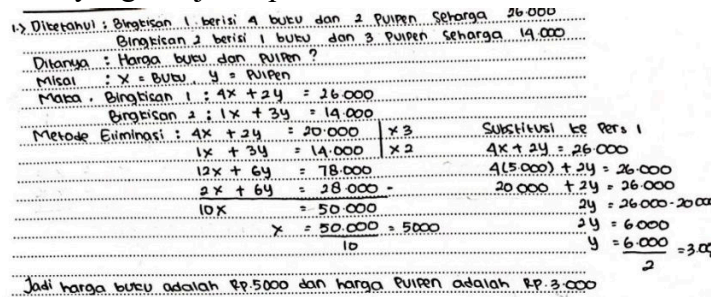 1.) Diketahui : Bingkisan 1 berisi 4 buku dan 2 Pulpen seharga 26.000
Bingkisan 2 berisi 1 buku dan 3 Pulpen seharga 14.000
Ditanya : Harga buku dan Pulpen ?
Misal : x = Buku, y = Pulpen
Maka, Bingkisan 1 : 4x + 2y = 26.000
Bingkisan 2 : 1x + 3y = 14.000
Metode Eliminasi : 4x + 2y = 20.000 | x 3
1x + 3y = 14.000 | x 2
12x + 6y = 78.000
2x + 6y = 28.000 -
10x = 50.000
x = 50.000 = 5000
10
Substitusi ke Pers 1
4x + 2y = 26.000
4(5.000) + 2y = 26.000
20.000 + 2y = 26.000
2y = 26.000 - 20.000
2y = 6000
y = 6.000 = 3.00
2
Jadi harga buku adalah Rp.5000 dan harga Pulpen adalah Rp.3.000